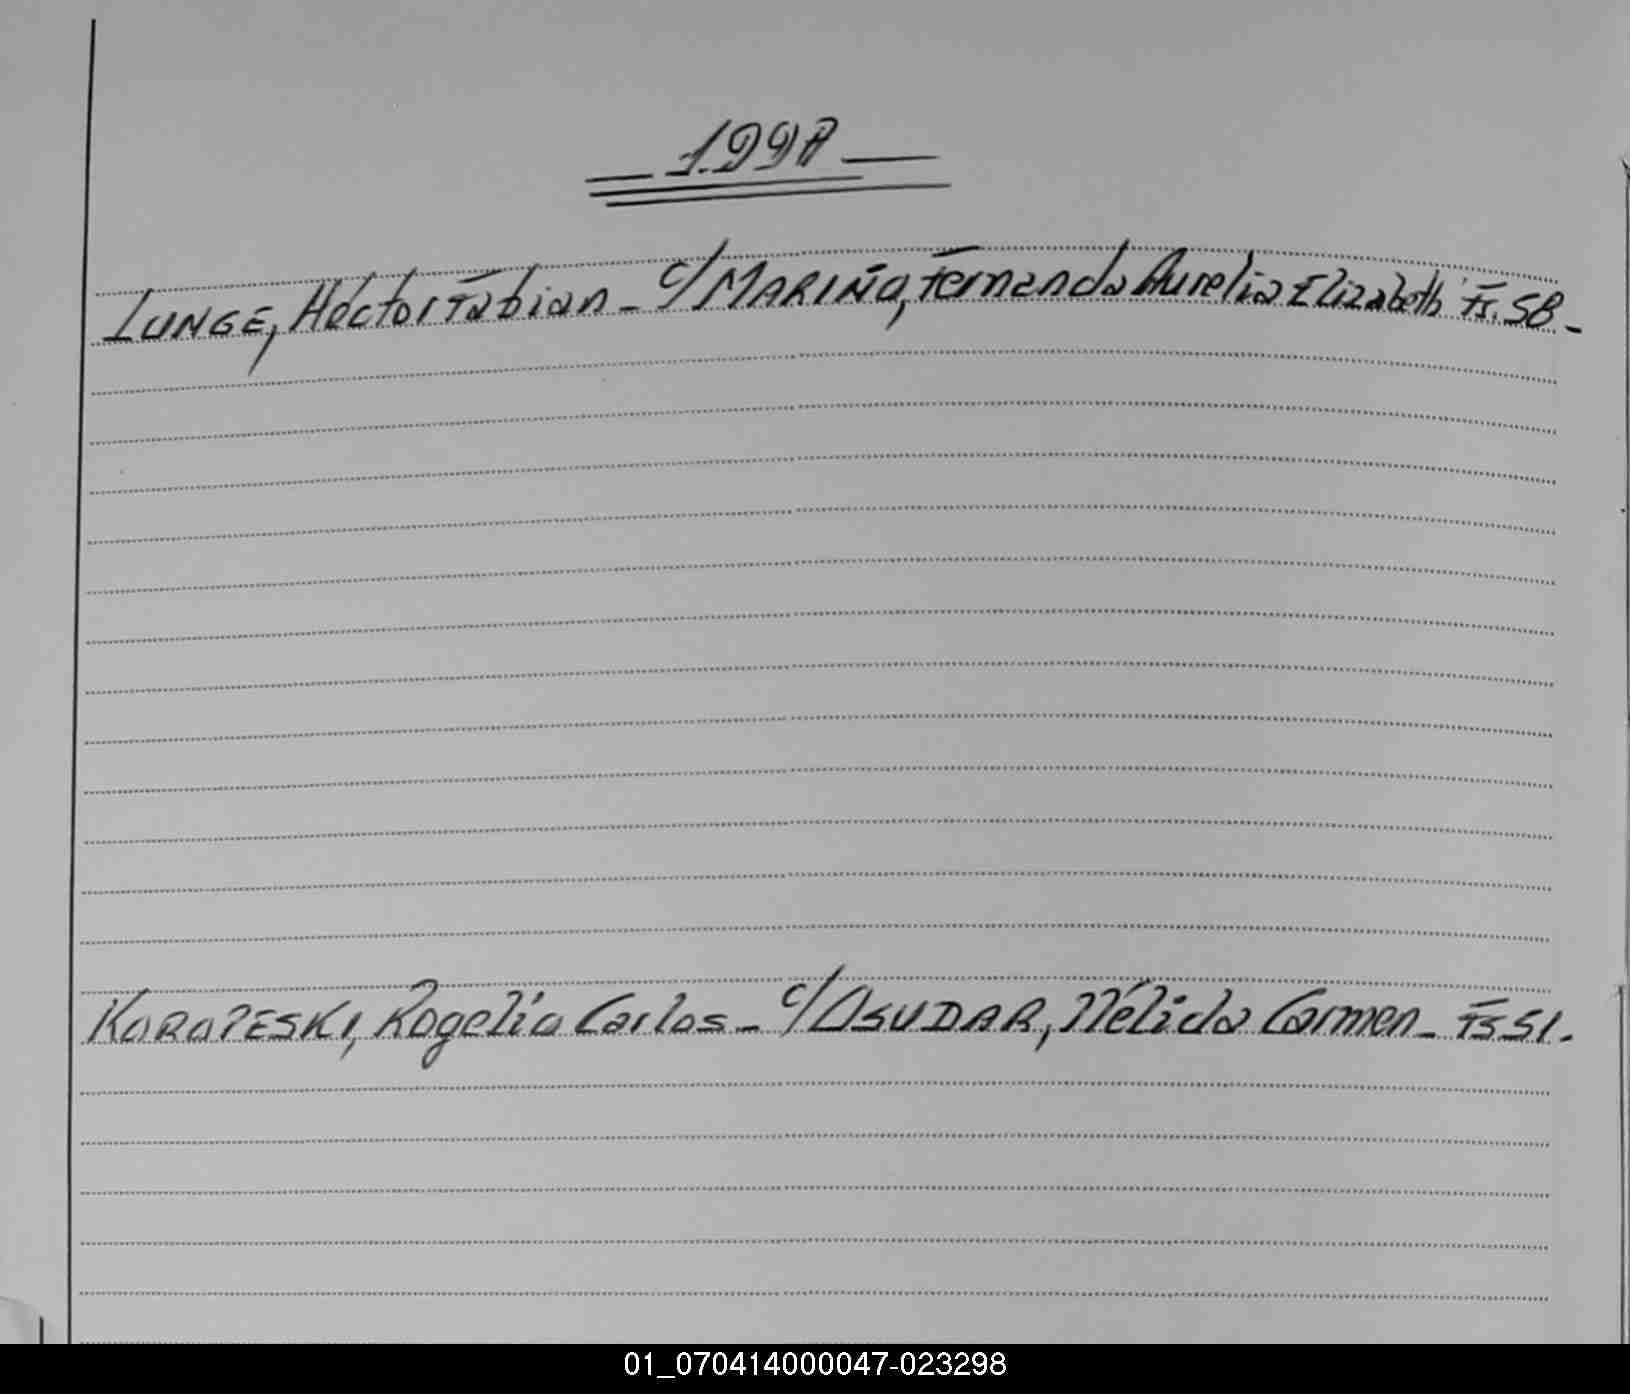 1.998
IUNGE, Héctor Fabian - c/ MARIÑO, Fernanda Aurelia Elizabeth Fs. 58 -
KARAPESKI, Rogelio Carlos - c/ OSUDAR, Nélida Carmen - Fs 51.
01_070414000047-023298